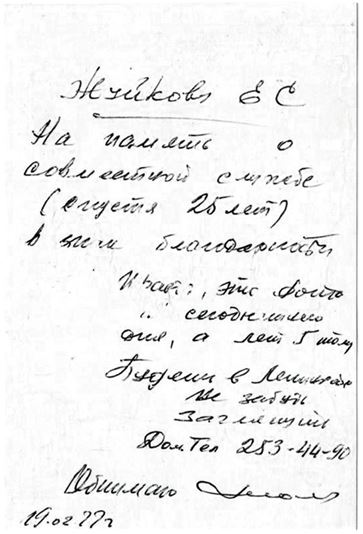 Жуйкову Е С
На память о
совместной службе
(спустя 25 лет)
в знак благодарности
Кстати, это фото
не сегодняшнего
дня, а лет 5 тому
Будешь в Ленинграде
не забудь
Загляни
Дом. Тел 253-44-90
Обнимаю